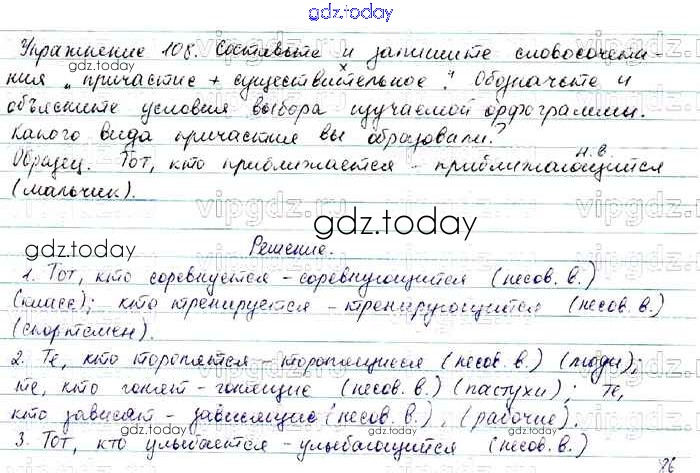 gdz.today
Упражнение 108. Составьте и запишите словосочета-
ния "причастие + существительное". Обозначьте и
объясните условия выбора изучаемой орфограммы.
Какого вида причастия вы образовали?
н.в.
Образец. Тот, кто приближается - приближающийся
(мальчик).
gdz.today gdz.today
Решение.
1. Тот, кто соревнуется - соревнующийся (несов. в.)
(класс); кто тренируется - тренирующийся (несов. в.)
(спортсмен).
2. Те, кто торопятся - торопящиеся (несов. в.) (люди);
те, кто гонят - гонящие (несов. в.) (пастухи); те,
кто зависят - зависящие (несов. в.), (рабочие).
3. Тот, кто улыбается - улыбающийся (несов. в.)
86
vipgdz.ru